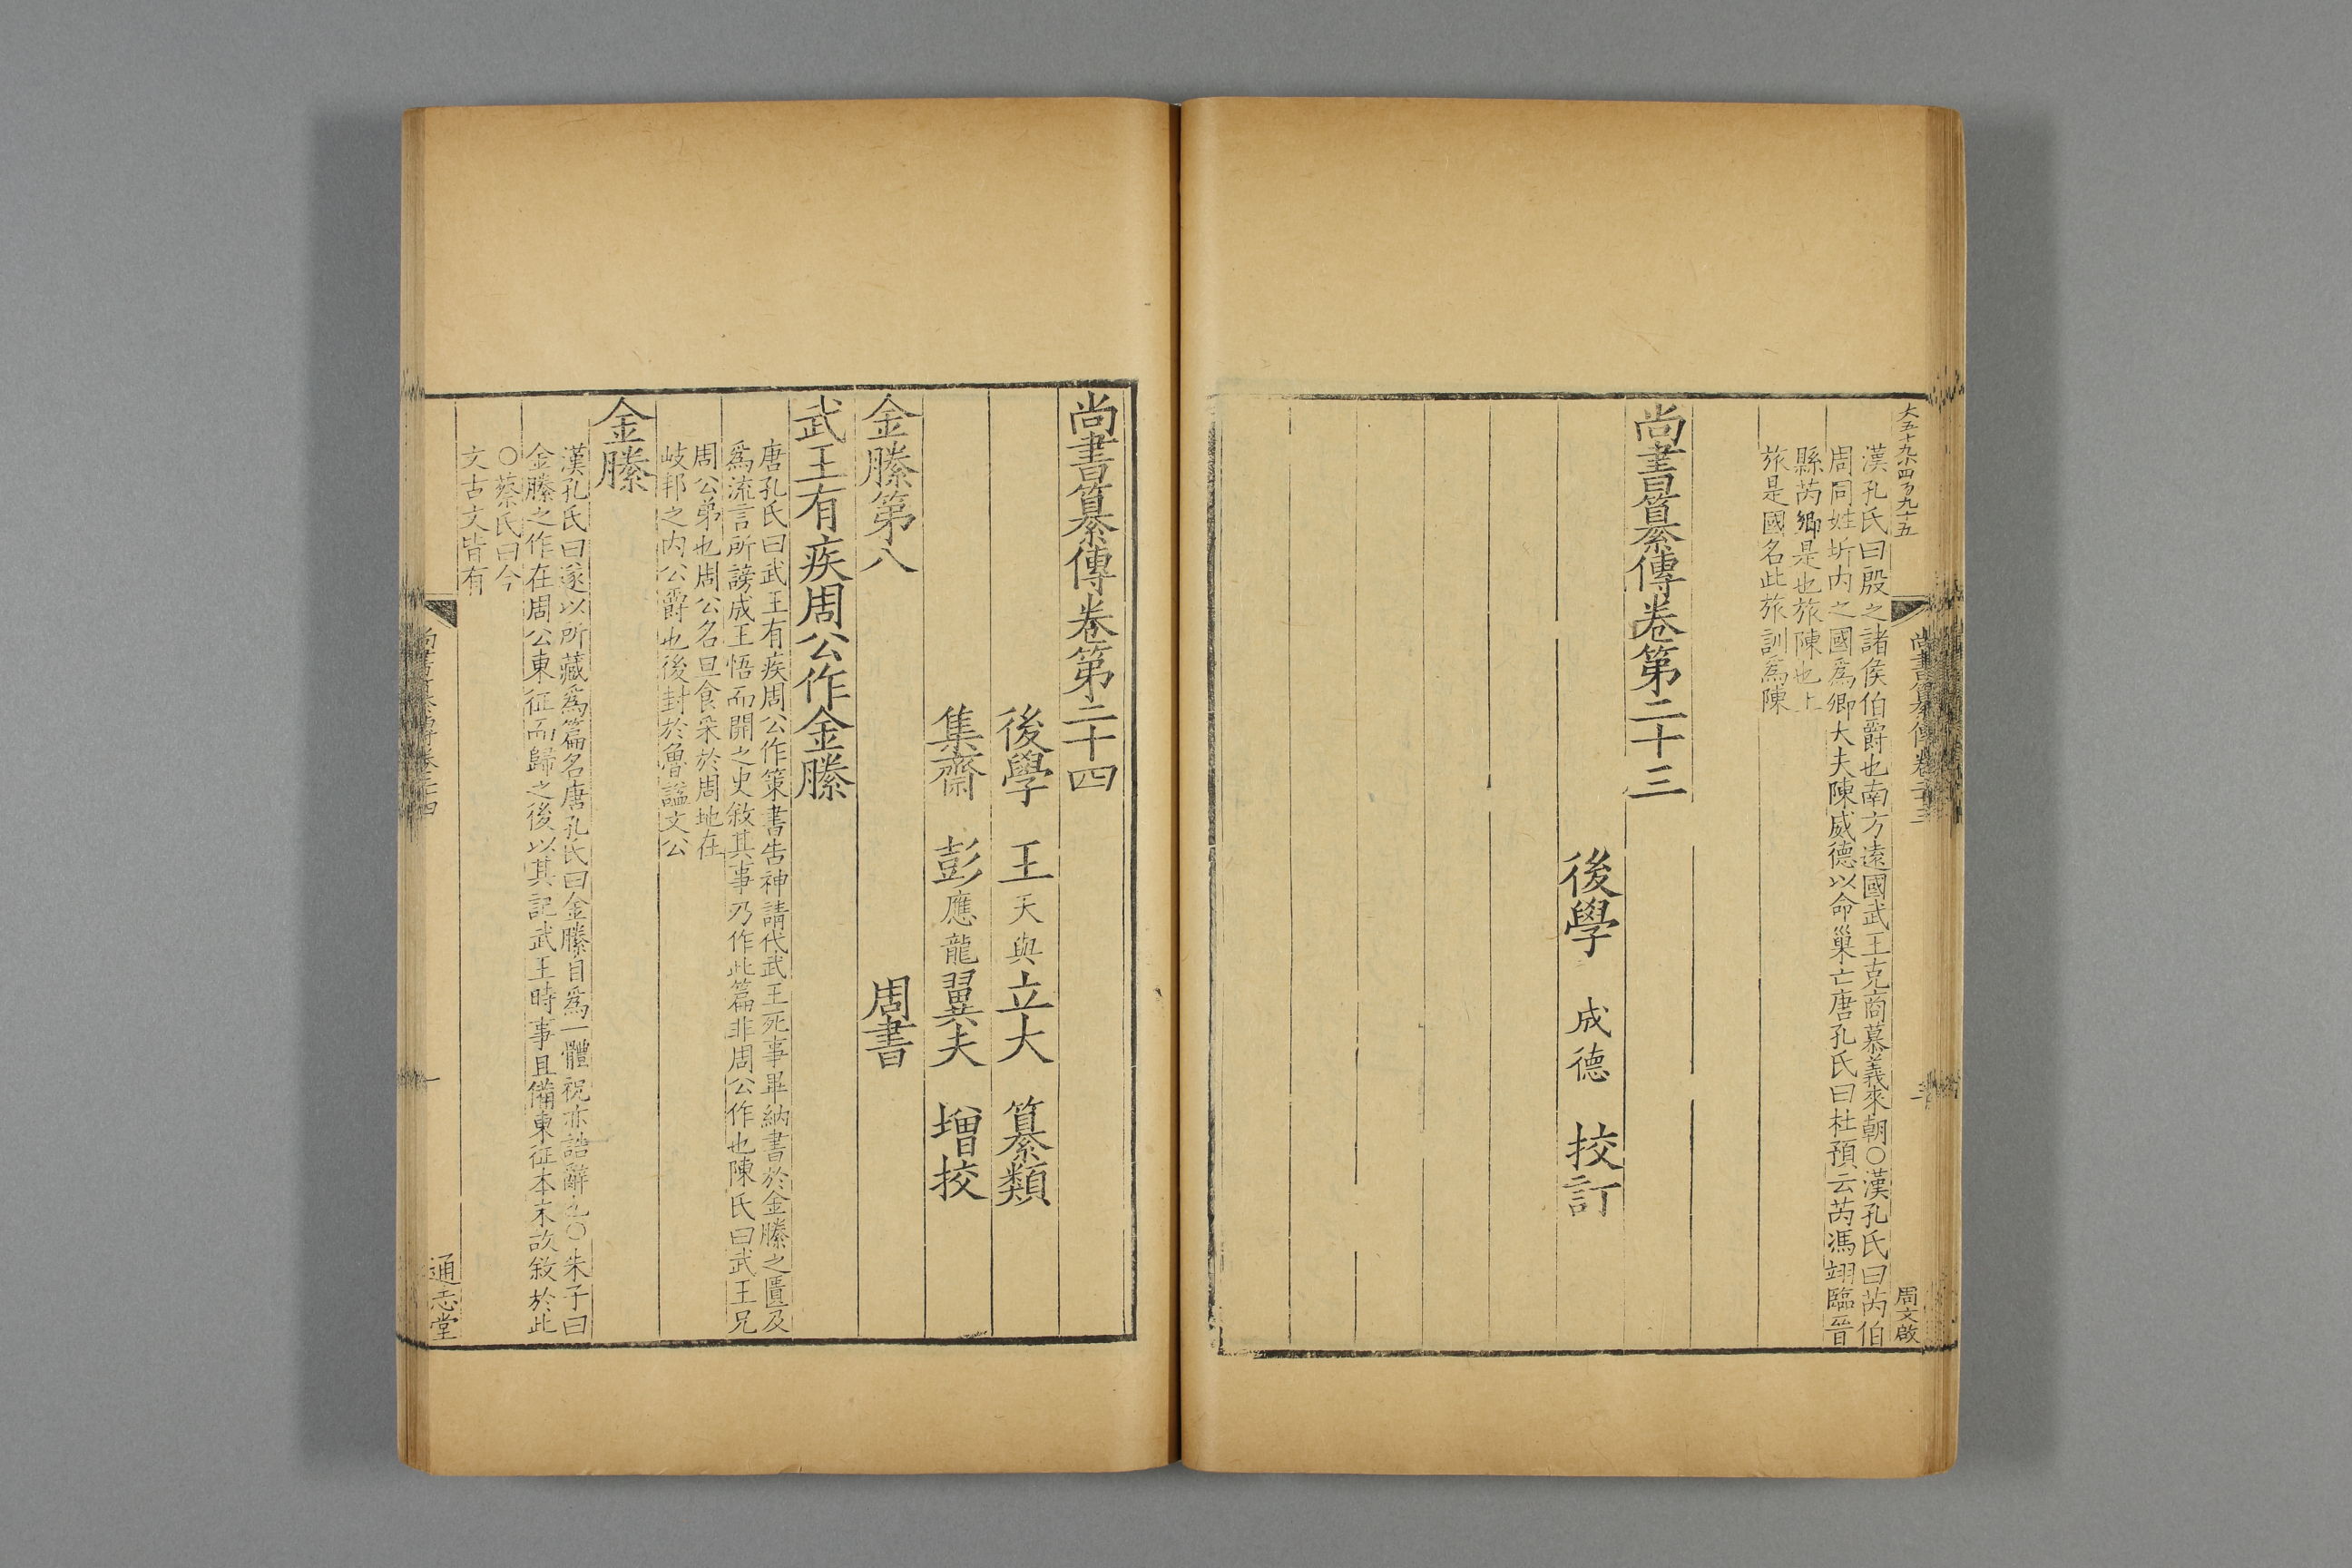 大五十九小四百九十五
周文啟
尚書纂傳卷二十三
漢孔氏曰殷之諸侯伯爵也南方遠國武王克商慕義來朝〇漢孔氏曰芮伯
周同姓圻内之國爲卿大夫陳威德以命巢亡唐孔氏曰杜預云芮馮翊臨晉
縣芮鄉是也旅陳也上
旅是國名此旅訓爲陳
尚書纂傳卷第二十三
後學 成德 挍訂
尚書纂傳卷第二十四
後學 王天與立大 纂類
集齋 彭應龍翼夫 增挍
金縢第八 周書
武王有疾周公作金縢
唐孔氏曰武王有疾周公作策書告神請代武王死事畢納書於金縢之匱及
爲流言所謗成王悟而開之史敘其事乃作此篇非周公作也陳氏曰武王兄
周公弟也周公名旦食采於周地在
岐邦之内公爵也後封於魯謚文公
金縢
漢孔氏曰遂以所藏爲篇名唐孔氏曰金縢自爲一體祝亦誥辭也〇朱子曰
金縢之作在周公東征而歸之後以其記武王時事且備東征本末故敘於此
〇蔡氏曰今
文古文皆有
尚書纂傳卷二十四
一
通志堂